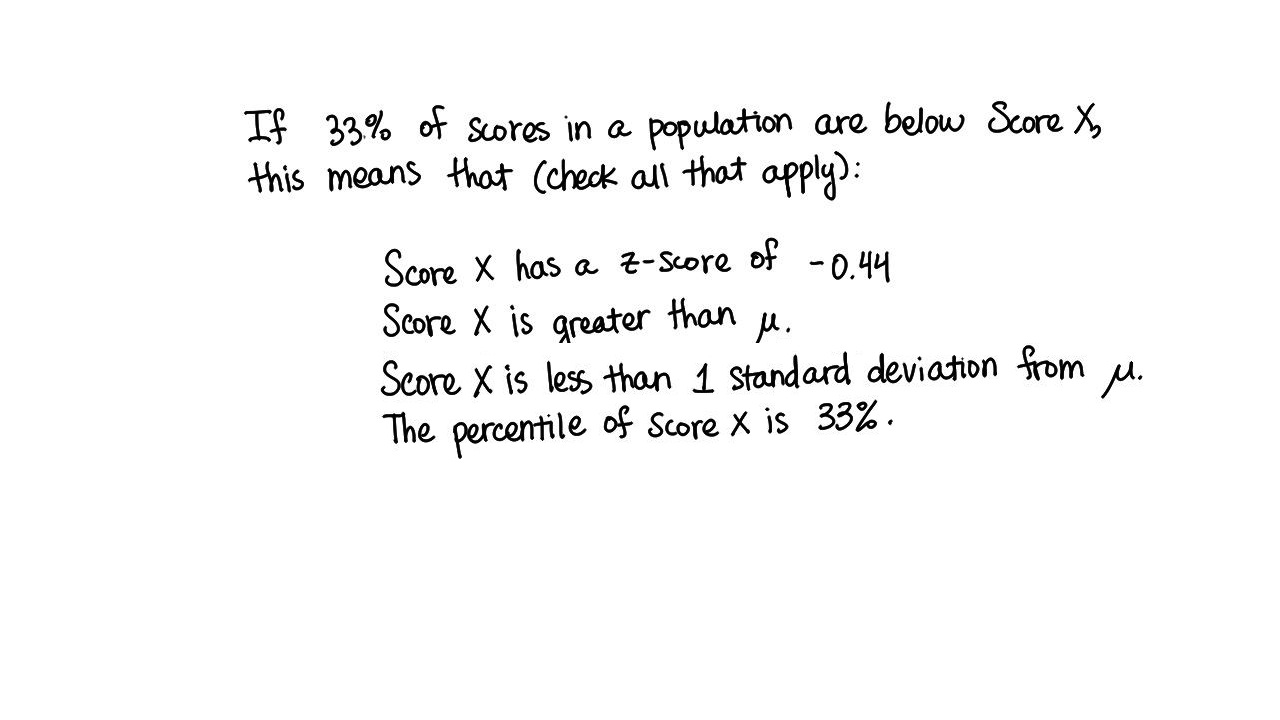 If 33% of scores in a population are below Score X,
this means that (check all that apply):
Score X has a z-score of -0.44
Score X is greater than μ.
Score X is less than 1 standard deviation from μ.
The percentile of Score X is 33%.